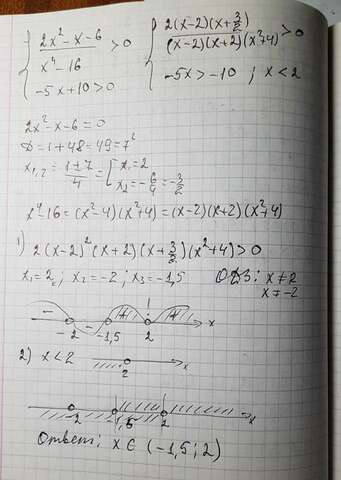 { (2x² - x - 6)/(x⁴ - 16) > 0
-5x + 10 > 0
{ 2(x-2)(x+3/2)/((x-2)(x+2)(x²+4)) > 0
-5x > -10 ; x < 2
2x² - x - 6 = 0
D = 1 + 48 = 49 = 7²
x₁,₂ = (1±7)/4 = [ x₁ = 2
x₂ = -6/4 = -3/2
x⁴-16 = (x²-4)(x²+4) = (x-2)(x+2)(x²+4)
1) 2(x-2)²(x+2)(x+3/2)(x²+4) > 0
x₁ = 2; x₂ = -2; x₃ = -1,5 ОДЗ: x ≠ 2
x ≠ -2
- - + +
-2 -1,5 2 x
2) x < 2
2 x
-2 -1,5 2 x
Ответ: x ∈ (-1,5; 2)